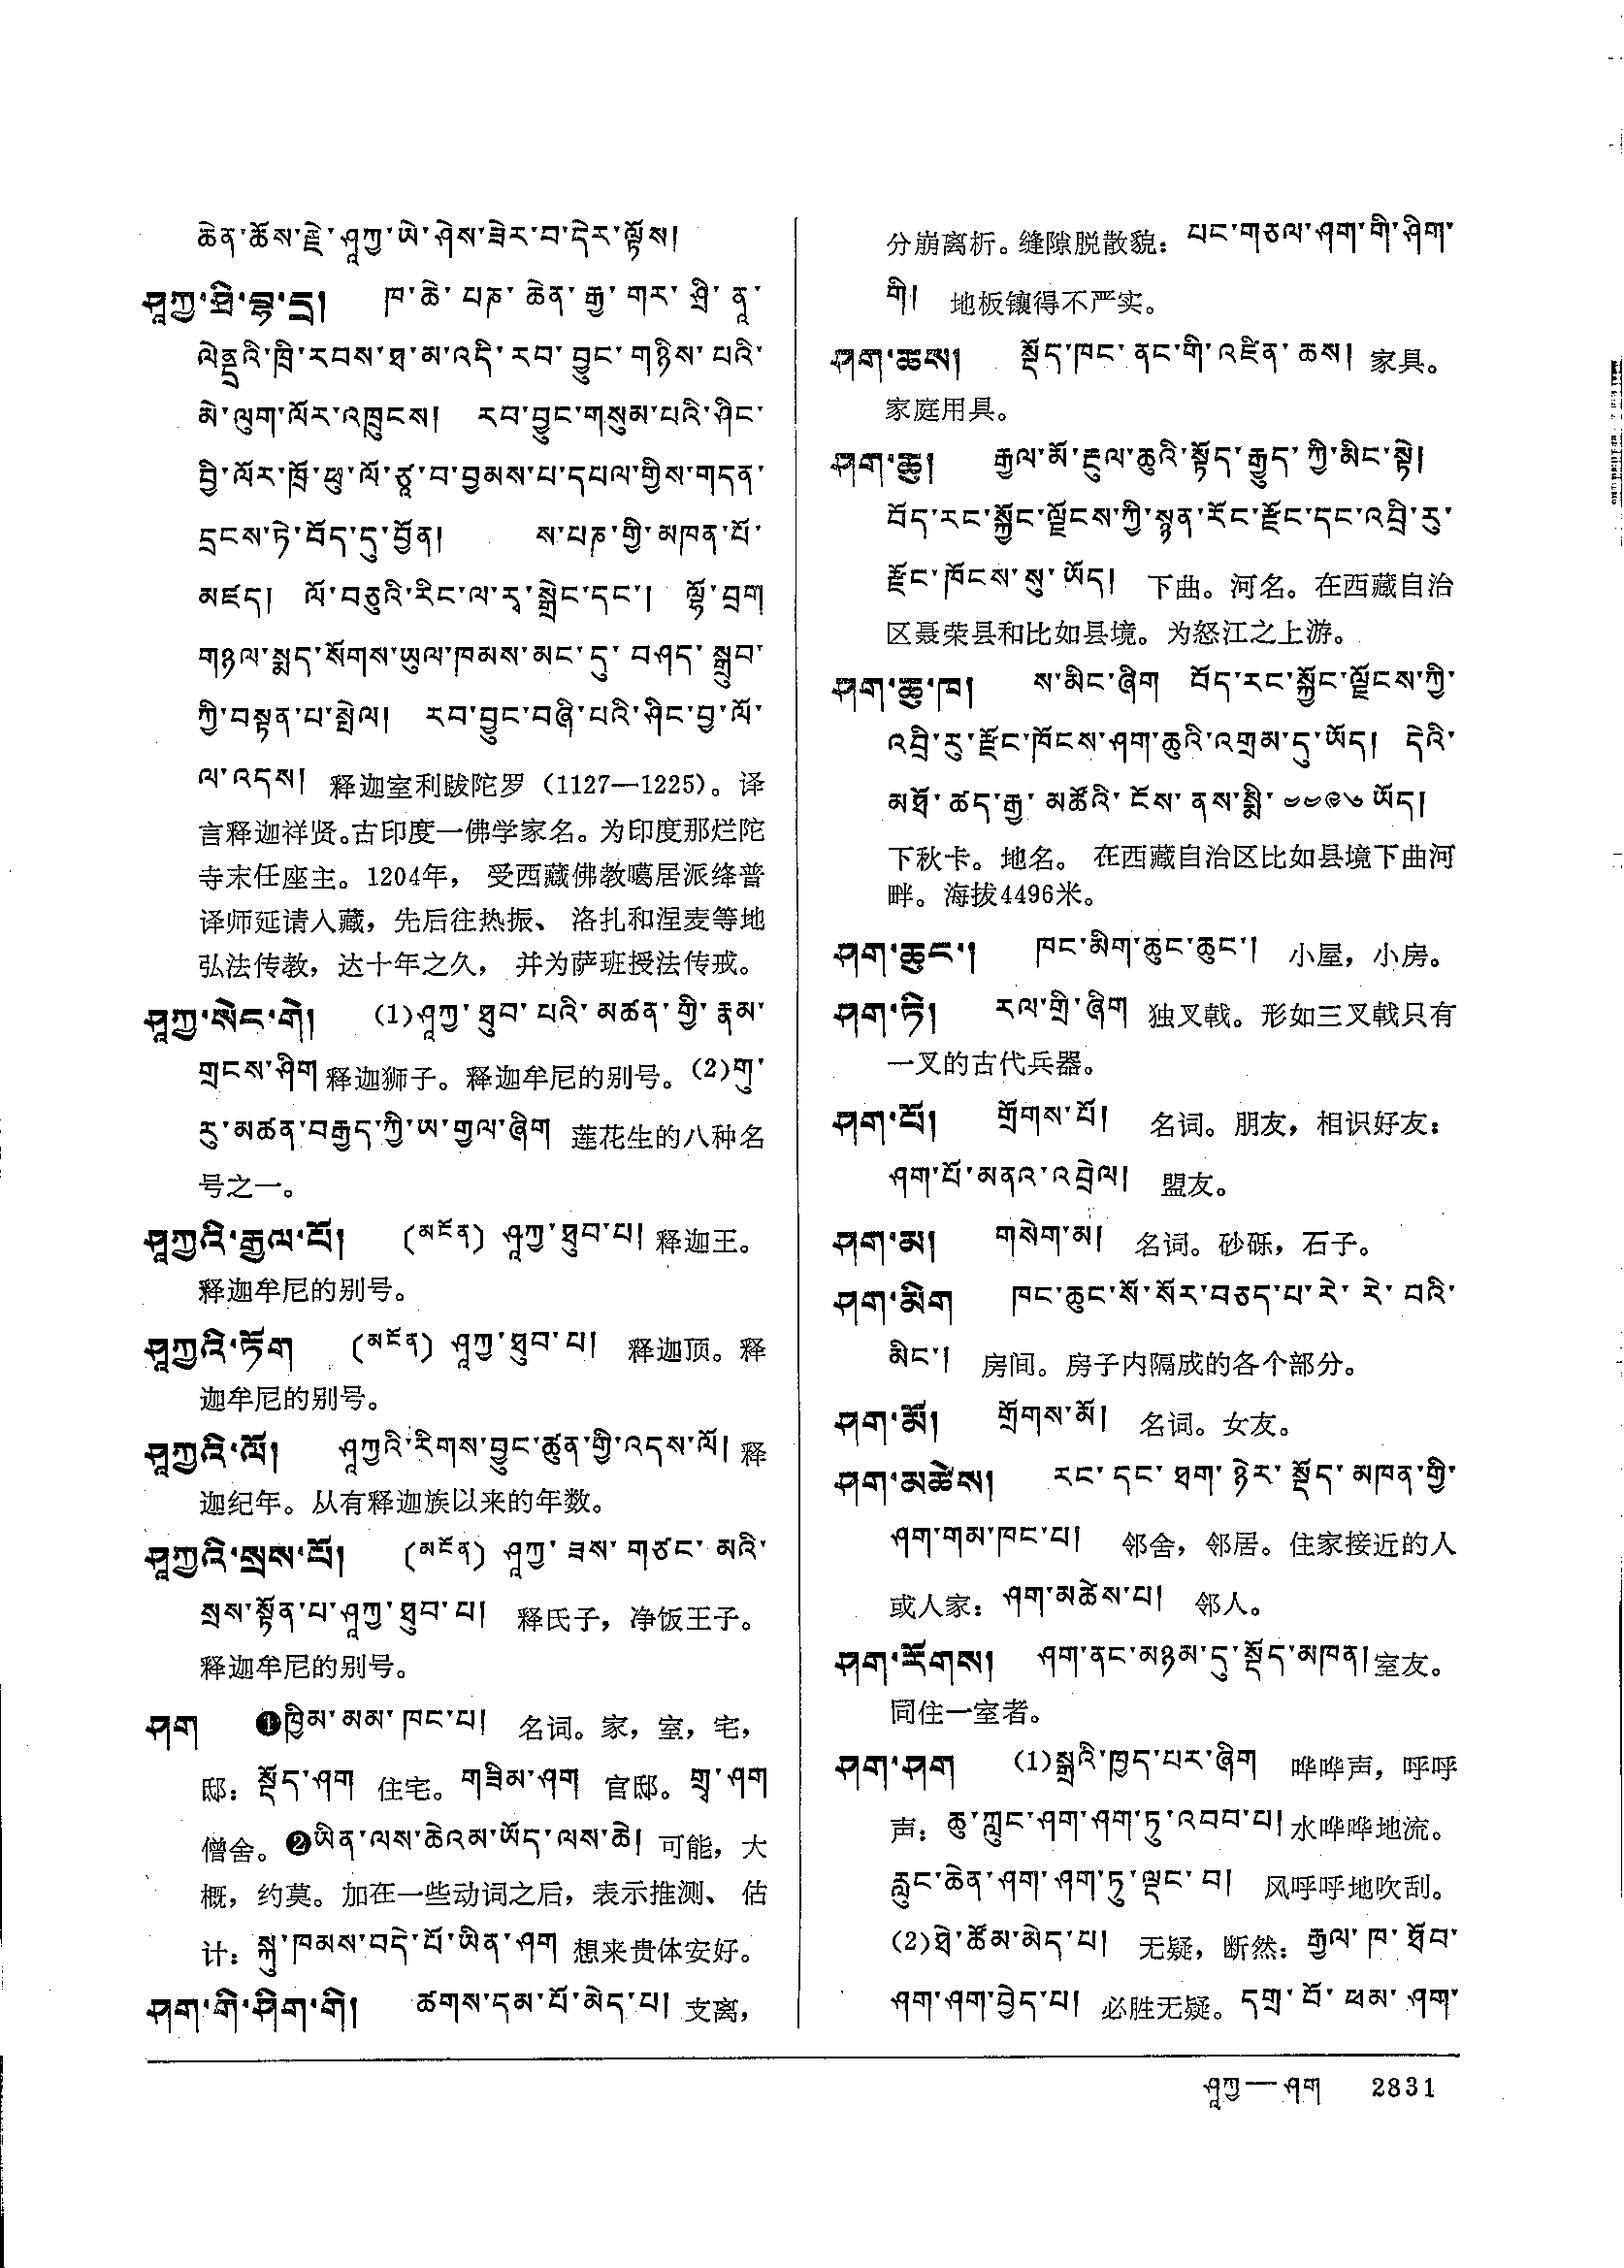 ཆེན་ཆོས་རྗེ་ཤཱཀྱ་ཡེ་ཤེས་ཟེར་བ་དེར་ལྟོས།
ཤཱཀྱ་ཤྲི་བྷ་དྲ། ཁ་ཆེ་པཎ་ཆེན་རྒྱ་གར་ཤྲི་ནཱ་
ལེནྡྲའི་ཁྲི་རབས་ཐ་མ་འདི་རབ་བྱུང་གཉིས་པའི་
མེ་ལུག་ལོར་འཁྲུངས། རབ་བྱུང་གསུམ་པའི་ཤིང་
བྱི་ལོར་ཁྲོ་ཕུ་ལོ་ཙཱ་བ་བྱམས་པ་དཔལ་གྱིས་གདན་
དྲངས་ཏེ་བོད་དུ་བྱོན། ས་པཎ་གྱི་མཁན་པོ་
མཛད། ལོ་བཅུའི་རིང་ལ་རྭ་སྒྲེང་དང་། ལྷོ་བྲག
གཉལ་སྨད་སོགས་ཡུལ་ཁམས་མང་དུ་བཤད་སྒྲུབ་
ཀྱི་བསྟན་པ་སྤེལ། རབ་བྱུང་བཞི་པའི་ཤིང་བྱ་ལོ་
ལ་འདས། 释迦室利跋陀罗（1127—1225）。译
言释迦祥贤。古印度一佛学家名。为印度那烂陀
寺末任座主。1204年，受西藏佛教噶居派绛普
译师延请入藏，先后往热振、洛扎和涅麦等地
弘法传教，达十年之久，并为萨班授法传戒。
ཤཱཀྱ་སེང་གེ། (1)ཤཱཀྱ་ཐུབ་པའི་མཚན་གྱི་རྣམ་
གྲངས་ཤིག 释迦狮子。释迦牟尼的别号。(2)གུ་
རུ་མཚན་བརྒྱད་ཀྱི་ཨ་གྱལ་ཞིག 莲花生的八种名
号之一。
ཤཱཀྱའི་རྒྱལ་པོ། (མངོན) ཤཱཀྱ་ཐུབ་པ། 释迦王。
释迦牟尼的别号。
ཤཱཀྱའི་ཏོག (མངོན) ཤཱཀྱ་ཐུབ་པ། 释迦顶。释
迦牟尼的别号。
ཤཱཀྱའི་ལོ། ཤཱཀྱའི་རིགས་བྱུང་ཚུན་གྱི་འདས་ལོ། 释
迦纪年。从有释迦族以来的年数。
ཤཱཀྱའི་སྲས་པོ། (མངོན) ཤཱཀྱ་ཟས་གཙང་མའི་
སྲས་སྟོན་པ་ཤཱཀྱ་ཐུབ་པ། 释氏子，净饭王子。
释迦牟尼的别号。
ཤག ❶ཁྱིམ་མམ་ཁང་པ། 名词。家，室，宅，
邸：སྡོད་ཤག 住宅。གཟིམ་ཤག 官邸。གྲྭ་ཤག
僧舍。❷ཡིན་ལས་ཆེའམ་ཡོད་ལས་ཆེ། 可能，大
概，约莫。加在一些动词之后，表示推测、估
计：སྐུ་ཁམས་བདེ་པོ་ཡིན་ཤག 想来贵体安好。
ཤག་གེ་ཤིག་གེ། ཚགས་དམ་པོ་མེད་པ། 支离，
分崩离析。缝隙脱散貌：པང་གཅལ་ཤག་གི་ཤིག་
གི། 地板镶得不严实。
ཤག་ཆས། སྡོད་ཁང་ནང་གི་འཛིན་ཆས། 家具。
家庭用具。
ཤག་ཆུ། རྒྱལ་མོ་རྔུལ་ཆུའི་སྟོད་རྒྱུད་ཀྱི་མིང་སྟེ།
བོད་རང་སྐྱོང་ལྗོངས་ཀྱི་སྙན་རོང་རྫོང་དང་འབྲི་རུ་
རྫོང་ཁོངས་སུ་ཡོད། 下曲。河名。在西藏自治
区聂荣县和比如县境。为怒江之上游。
ཤག་ཆུ་ཁ། ས་མིང་ཞིག བོད་རང་སྐྱོང་ལྗོངས་ཀྱི་
འབྲི་རུ་རྫོང་ཁོངས་ཤག་ཆུའི་འགྲམ་དུ་ཡོད། དེའི་
མཐོ་ཚད་རྒྱ་མཚོའི་ངོས་ནས་སྨི་༤༤༩༦ ཡོད།
下秋卡。地名。在西藏自治区比如县境下曲河
畔。海拔4496米。
ཤག་ཆུང་། ཁང་མིག་ཆུང་ཆུང་། 小屋，小房。
ཤག་ཏི། རལ་གྲི་ཞིག 独叉戟。形如三叉戟只有
一叉的古代兵器。
ཤག་པོ། གྲོགས་པོ། 名词。朋友，相识好友：
ཤག་པོ་མནའ་འབྲེལ། 盟友。
ཤག་མ། གསེག་མ། 名词。砂砾，石子。
ཤག་མིག ཁང་ཆུང་སོ་སོར་བཅད་པ་རེ་རེ་བའི་
མིང་། 房间。房子内隔成的各个部分。
ཤག་མོ། གྲོགས་མོ། 名词。女友。
ཤག་མཚེས། རང་དང་ཐག་ཉེར་སྡོད་མཁན་གྱི་
ཤག་གམ་ཁང་པ། 邻舍，邻居。住家接近的人
或人家：ཤག་མཚེས་པ། 邻人。
ཤག་རོགས། ཤག་ནང་མཉམ་དུ་སྡོད་མཁན། 室友。
同住一室者。
ཤག་ཤག (1)སྒྲའི་ཁྱད་པར་ཞིག 哗哗声，呼呼
声：ཆུ་ཀླུང་ཤག་ཤག་ཏུ་འབབ་པ། 水哗哗地流。
རླུང་ཆེན་ཤག་ཤག་ཏུ་ལྡང་བ། 风呼呼地吹刮。
(2)ཐེ་ཚོམ་མེད་པ། 无疑，断然：རྒྱལ་ཁ་ཐོབ་
ཤག་ཤག་བྱེད་པ། 必胜无疑。དགྲ་བོ་ཕམ་ཤག་
ཤཱཀྱ—ཤག 2831